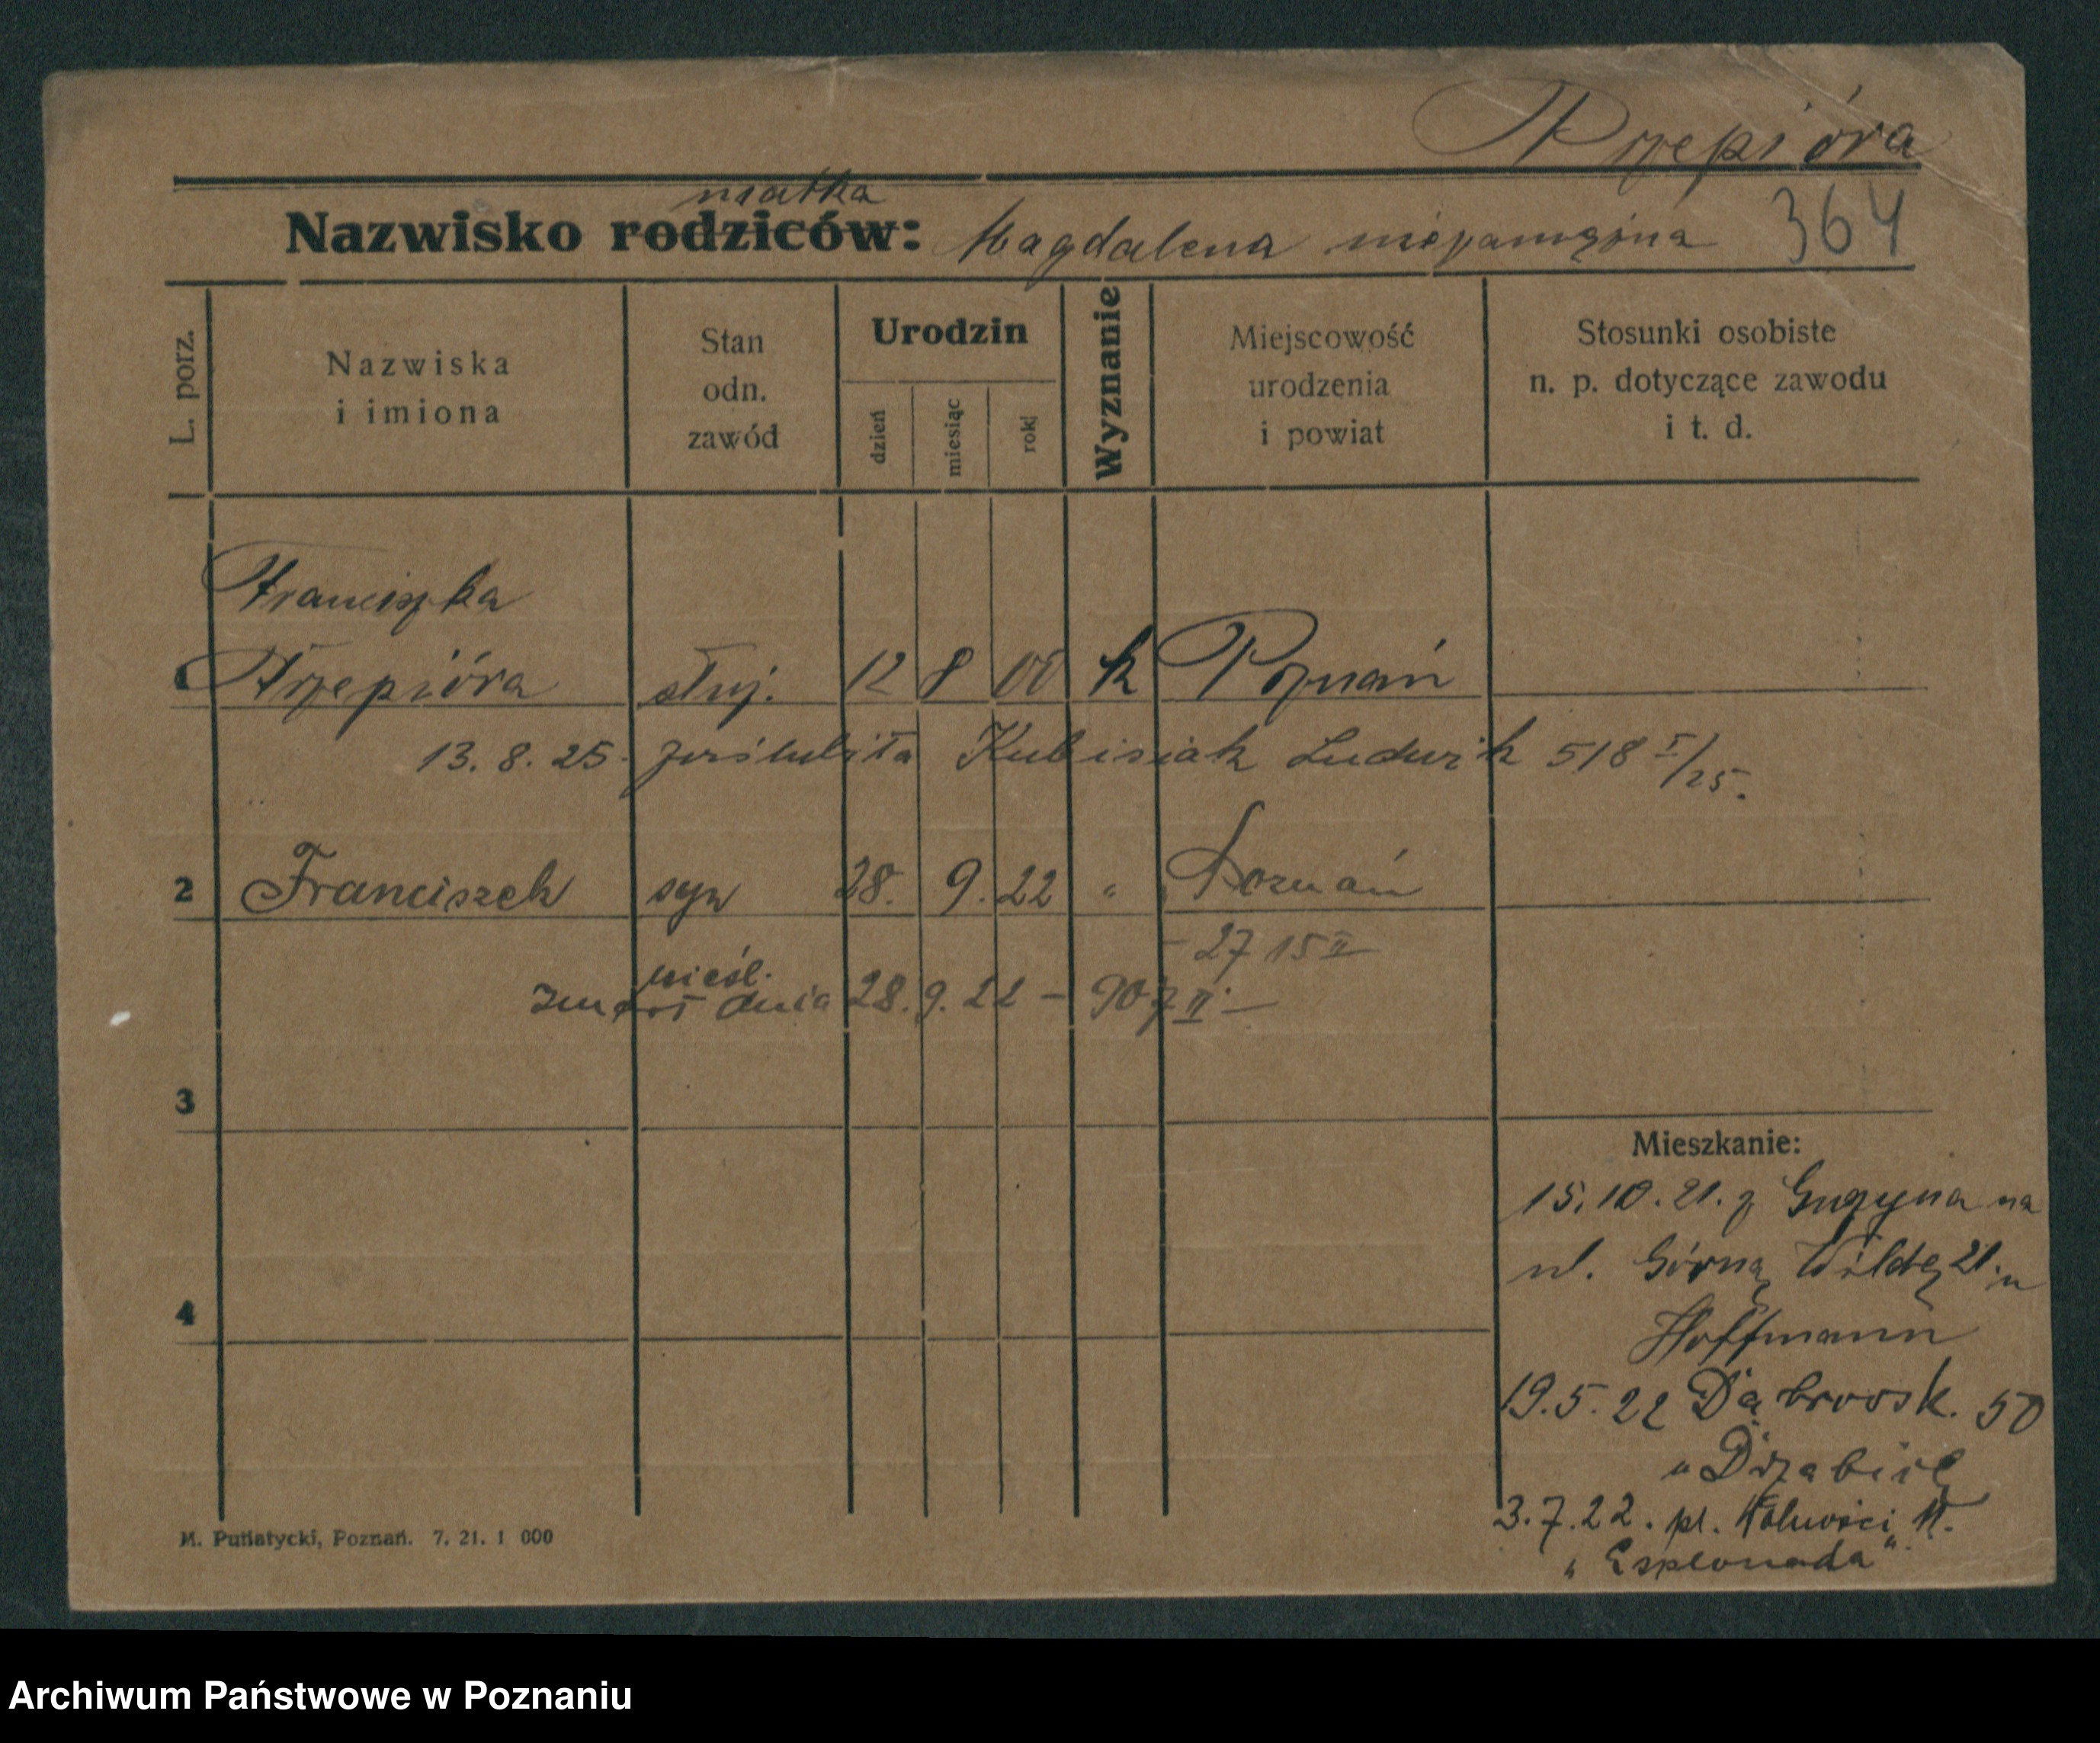 Przepióra
matka
Nazwisko rodziców: Magdalena niezamężna 364
L. porz.
Nazwiska i imiona
Stan odn. zawód
Urodzin
dzień
miesiąc
rok
Wyznanie
Miejscowość urodzenia i powiat
Stosunki osobiste n. p. dotyczące zawodu i t. d.
Franciszka
1 Przepióra służ. 12 8 00 k Poznań
13. 8. 25. poślubiła Kubisiak Ludwik 518 I/25.
2 Franciszek syn 28. 9. 22 " Poznań
- 2715 II
nieśl.
zmarł dnia 28. 9. 22 - 907 II -
3
Mieszkanie:
15. 10. 21. z na
ul. Górną Wildę 21. u
4
Hoffmann
19. 5. 22 Dąbrowsk. 50
3. 7. 22. pl. Wolności 11.
"Esplonada".
M. Putiatycki, Poznań. 7. 21. 1 000
Archiwum Państwowe w Poznaniu